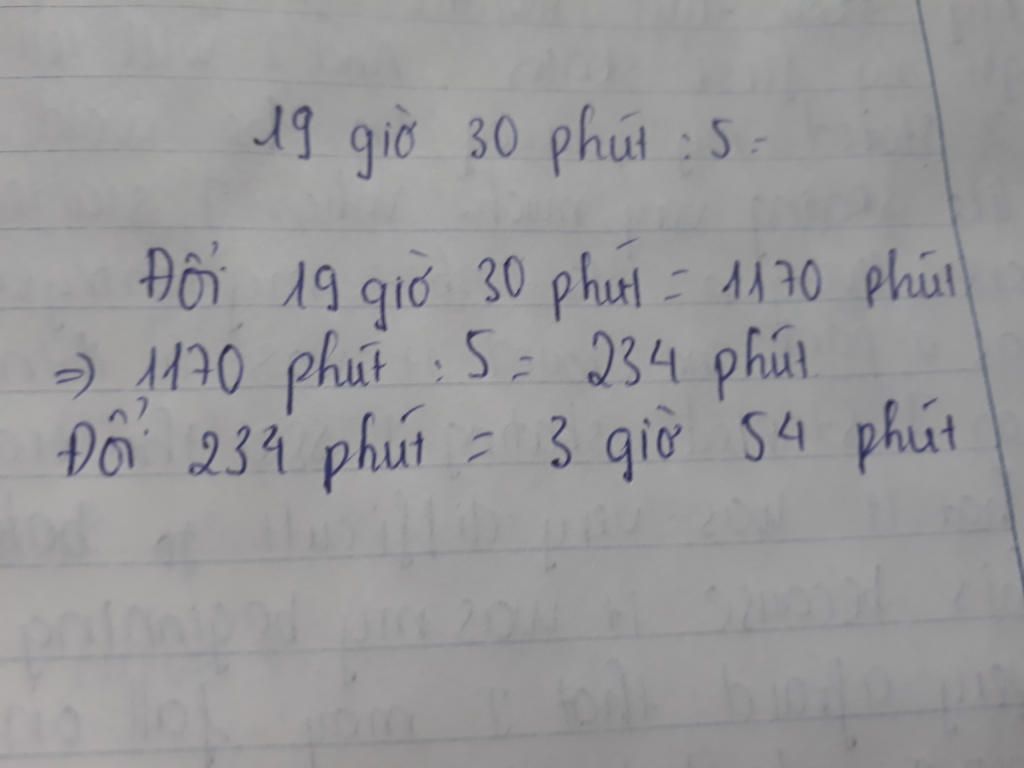 19 giờ 30 phút : 5 =
Đổi 19 giờ 30 phút = 1170 phút
⇒ 1170 phút : 5 = 234 phút
Đổi 234 phút = 3 giờ 54 phút